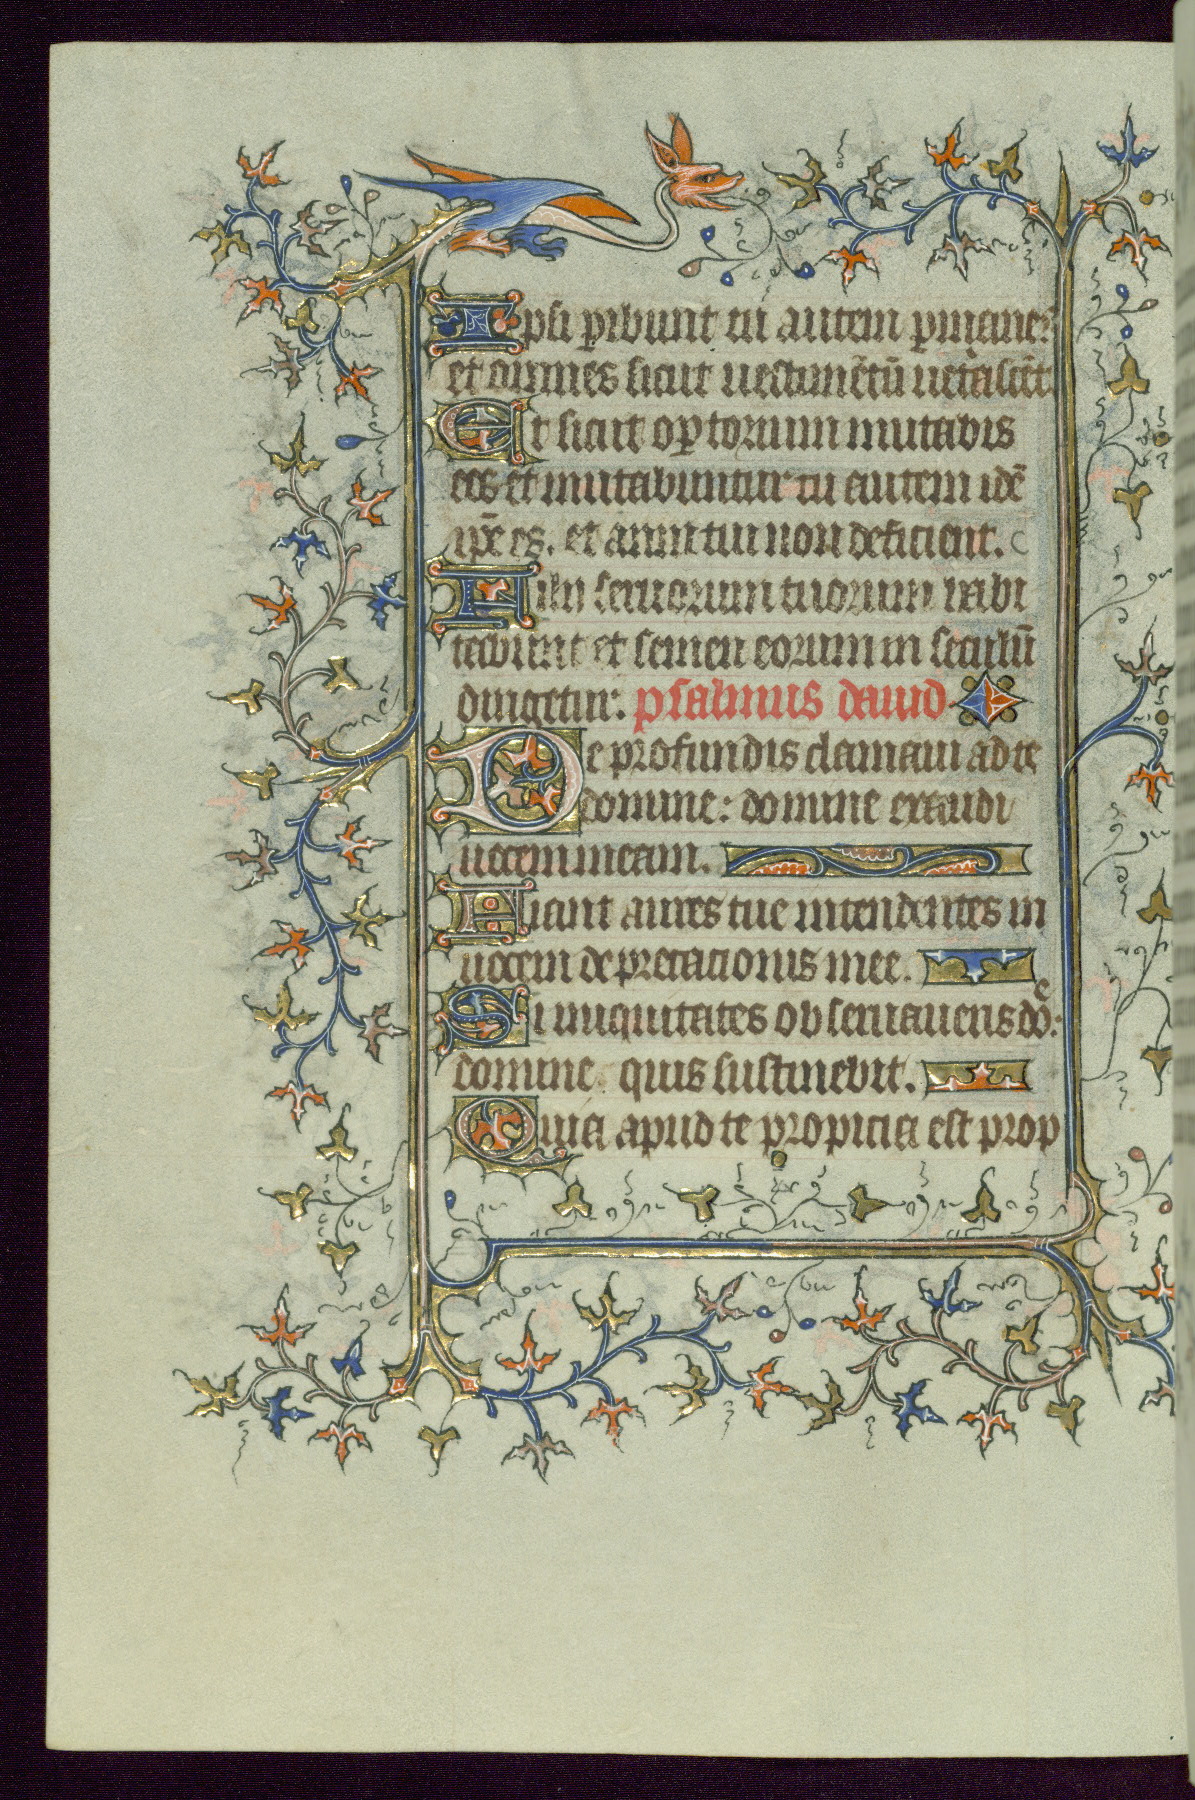 Ipsi p̲ibunt tu autem p̲mane:
et omnes sicut uestimẽtũ uetascẽt
Et sicut op̲torium mutabis
eos et mutabuntur tu autem idẽ
ip̃e es. et anni tui non deficient.
Filii seruorum tuorum habi
tabunt et semen eorum in seculũ
dirigetur: psalmus dauid
De profundis clamaui ad te
domine: domine exaudi
uocem meam.
Fiant aures tue intendentes in
uocem deprecationis mee.
Si iniquitates obseruaueris dõe:
domine quis sustinebit.
Quia apud te propicia est prop